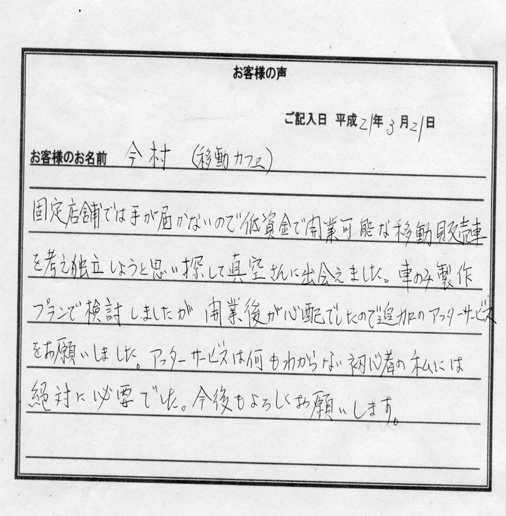 お客様の声
ご記入日 平成21年3月21日
お客様のお名前 今村 (移動カフェ)
固定店舗では手が届かないので低資金で開業可能な移動販売車
を考え独立しようと思い探して真空さんに出会えました。車のみ製作
プランで検討しましたが 開業後が心配でしたので追加のアフターサービス
をお願いしました。アフターサービスは何もわからない初心者の私には
絶対に必要でした。今後もよろしくお願いします。